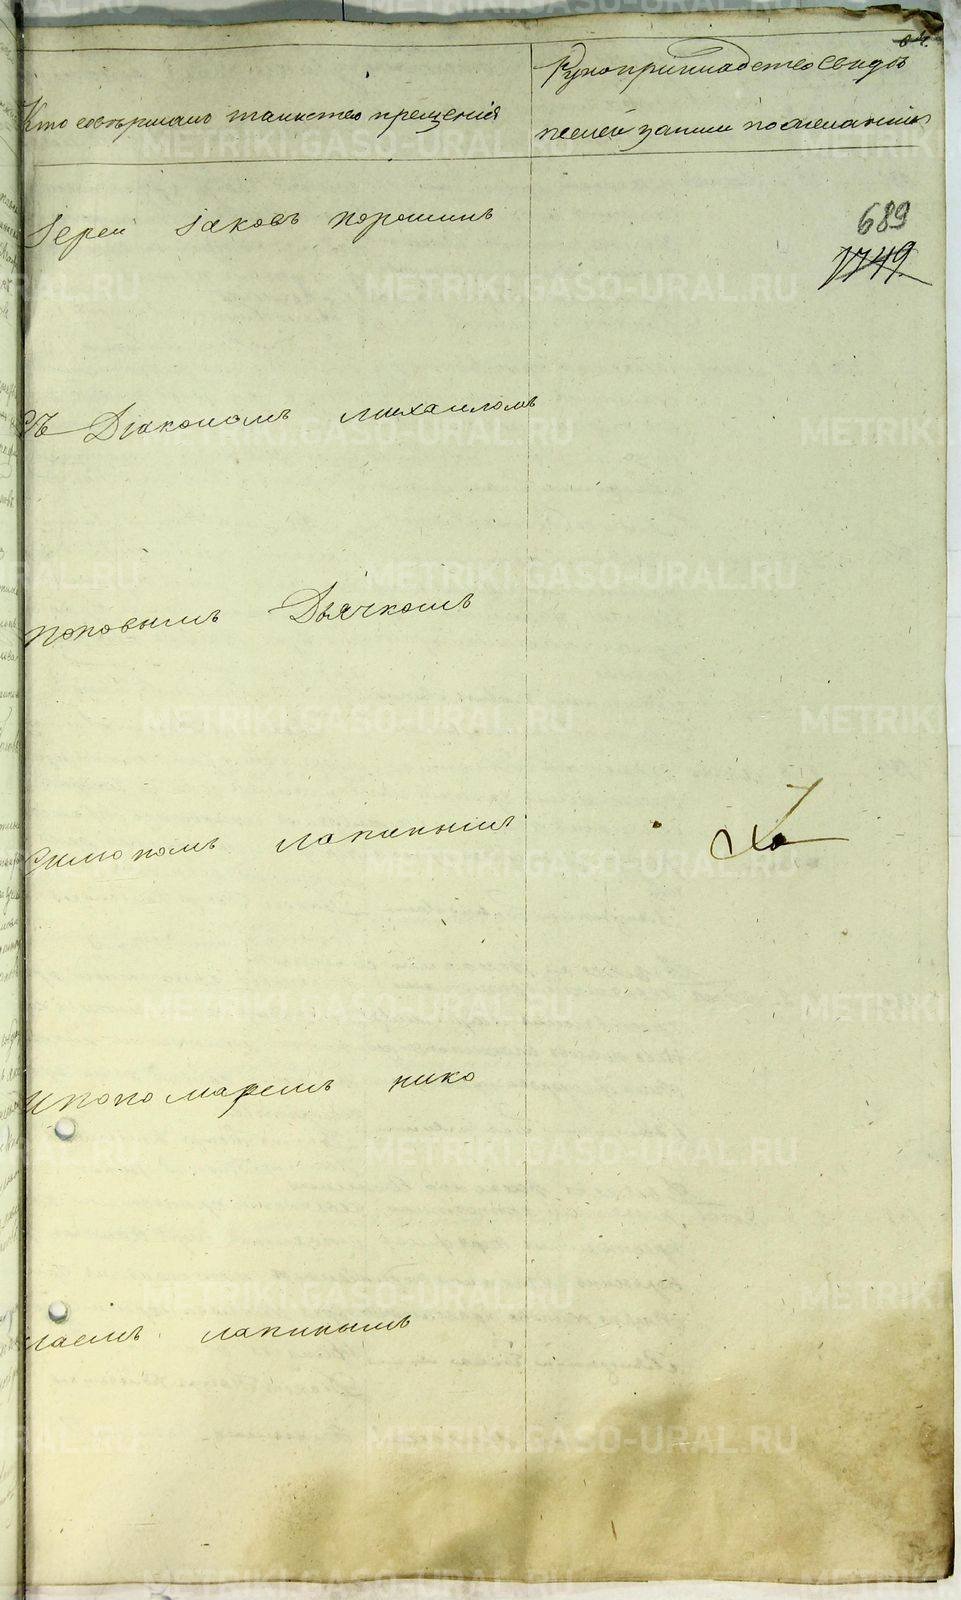 64.
Кто совершалъ таинство крещенія
Рукоприкладство свидѣ
телей записи по желанию
Іереи Іаковъ Порошинъ
689
1749
Съ Діакономъ Михаиломъ
Поповымъ Дьячкомъ
Симономъ Лапинымъ
Ипономаремъ Нико
лаемъ Лапинымъ
METRIKI.GASO-URAL.RU